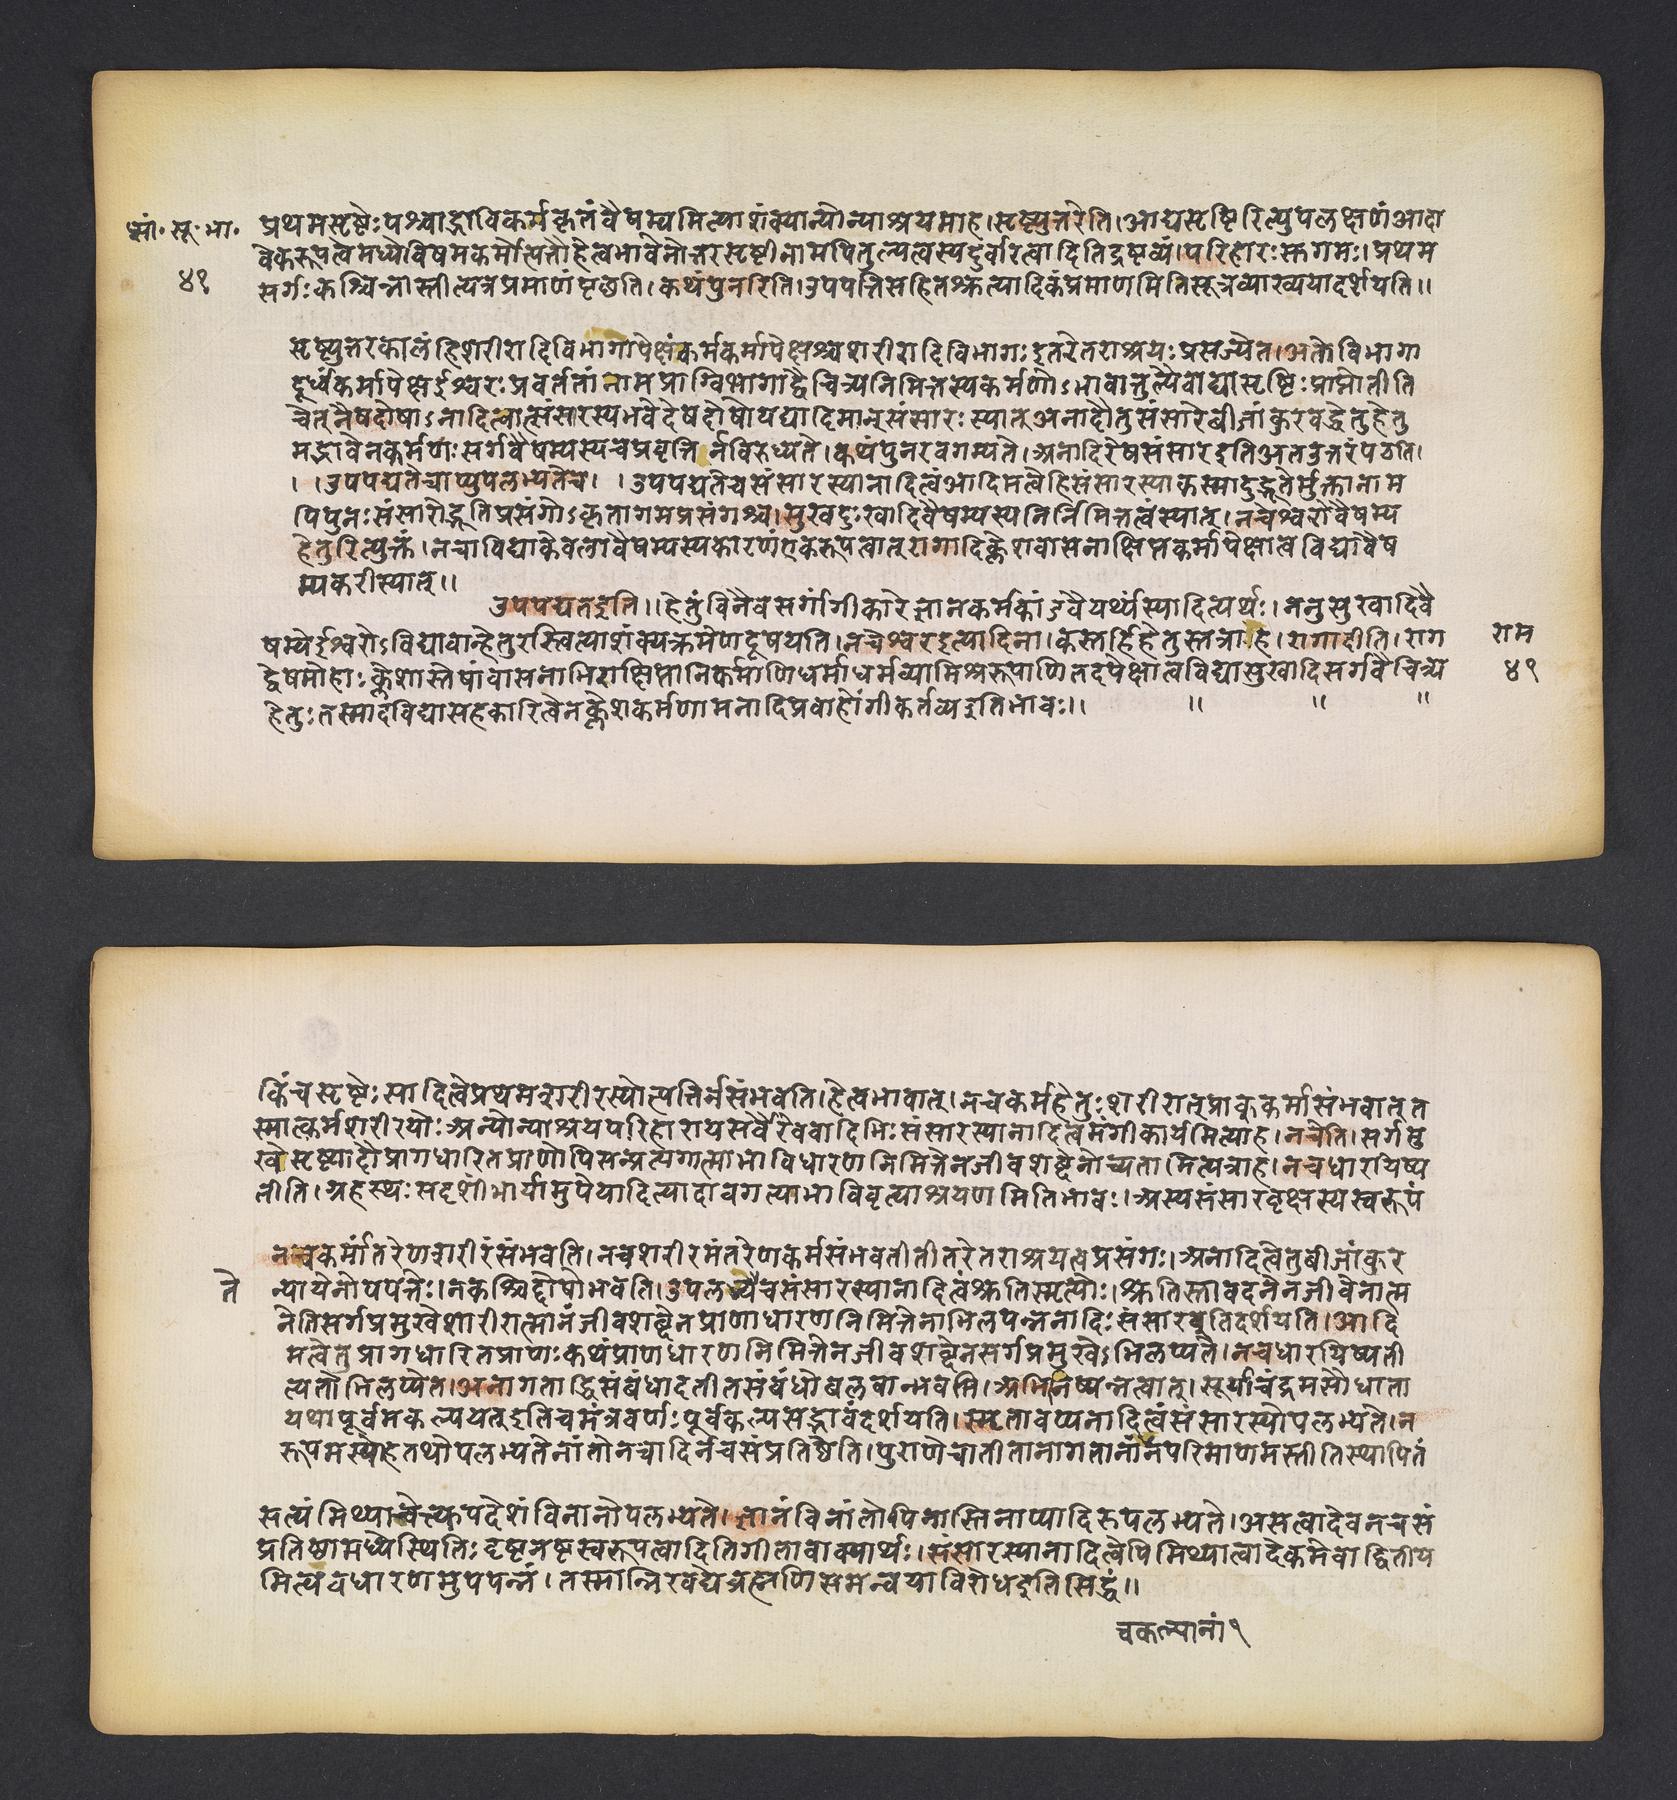 शां. सू. भा. प्रथमसृष्टेः पश्चाद्भाविकर्मकृतं वैषम्यमित्याशंक्यान्योन्याश्रयमाह । सृष्ट्युत्तरेति । आद्यसृष्टिरित्युपलक्षणं आदा
४१ वेकरूपत्वे मध्ये विषमकर्मोत्पत्तौ हेत्वभावेनोत्तरसृष्टीनामपि तुल्यत्वस्य दुर्वारत्वादिति द्रष्टव्यं । परिहारः सुगमः । प्रथम
सर्गः कश्चिन्नास्तीत्यत्र प्रमाणं पृच्छति । कथं पुनरिति । उपपत्तिसहितश्रुत्यादिकं प्रमाणमिति सूत्रव्याख्यया दर्शयति ॥
सृष्ट्युत्तरकालं हि शरीरादिविभागापेक्षं कर्म कर्मापेक्षश्च शरीरादिविभागः इतरेतराश्रयः प्रसज्येत । अतो विभागा
दूर्ध्वं कर्मापेक्ष ईश्वरः प्रवर्ततां नाम प्राग्विभागाद्वैचित्र्यनिमित्तस्य कर्मणोऽभावात्तुल्यैवाद्या सृष्टिः प्राप्नोतीति
चेत् नैष दोषोऽनादित्वात्संसारस्य भवेदेष दोषो यद्यादिमान् संसारः स्यात् अनादौ तु संसारे बीजांकुरवद्धेतुहेतु
मद्भावेन कर्मणः सर्गवैषम्यस्य च प्रवृत्तिर्न विरुध्यते । कथं पुनरवगम्यते । अनादिरेष संसार इति अत उत्तरं पठति ।
। । उपपद्यते चाप्युपलभ्यते च । । उपपद्यते च संसारस्यानादित्वं आदिमत्वे हि संसारस्याकस्मादुद्भूतेर्मुक्तानाम
पि पुनः संसारोद्भूतिप्रसंगोऽकृतागमप्रसंगश्च । सुखदुःखादिवैषम्यस्य निर्निमित्तत्वं स्यात् । न चेश्वरो वैषम्य
हेतुरित्युक्तं । न चाविद्या केवला वैषम्यस्य कारणं एकरूपत्वात् रागादिक्लेशवासनाक्षिप्तकर्मापेक्षा त्वविद्या वैष
म्यकरी स्यात् ॥
उपपद्यत इति ॥ हेतुं विनैव सर्गांगीकारे ज्ञानकर्मकांडवैयर्थ्यं स्यादित्यर्थः । ननु सुखादिवै
षम्ये ईश्वरोऽविद्या वा हेतुरस्त्वित्याशंक्य क्रमेण दूषयति । न चेश्वर इत्यादिना । कस्तर्हि हेतुस्तत्राह । रागादीति । राग राम
द्वेषमोहाः क्लेशास्तेषां वासनाभिराक्षिप्तानि कर्माणि धर्माधर्मव्यामिश्ररूपाणि तदपेक्षा त्वविद्या सुखादिसर्गवैचित्र्ये ४१
हेतुः तस्मादविद्यासहकारित्वेन क्लेशकर्मणामनादिप्रवाहोंगीकर्तव्य इति भावः ॥ ॥ ॥ ॥
किंच सृष्टेः सादित्वे प्रथमशरीरस्योत्पत्तिर्न संभवति । हेत्वभावात् । न च कर्म हेतुः शरीरात् प्राक् कर्मासंभवात् त
स्मात्कर्मशरीरयोः अन्योन्याश्रयपरिहाराय सर्वैरेव वादिभिः संसारस्यानादित्वमंगीकार्यमित्याह । न चेति । सर्गमु
खे सृष्ट्यादौ प्रागधारितप्राणोपि सन्प्रत्यगात्मा भाविधारणनिमित्तेन जीवशब्देनोच्यतामित्यत्राह । न च धारयिष्य
तीति । गृहस्थः सदृशीं भार्यामुपेयादित्यादावगत्या भाविवृत्त्याश्रयणमिति भावः । अस्य संसारवृक्षस्य स्वरूपं
न च कर्मांतरेण शरीरं संभवति । न च शरीरमंतरेण कर्म संभवतीतीतरेतराश्रयत्वप्रसंगः । अनादित्वे तु बीजांकुर
ने न्यायेनोपपत्तेः । न कश्चिद्दोषो भवति । उपलभ्यते च संसारस्यानादित्वं श्रुतिस्मृत्योः । श्रुतिस्तावदनेन जीवेनात्म
नेति सर्गप्रमुखे शारीरात्मानं जीवशब्देन प्राणधारणनिमित्तेनाभिलपन्ननादिः संसार इति दर्शयति । आदि
मत्वे तु प्रागधारितप्राणः कथं प्राणधारणनिमित्तेन जीवशब्देन सर्गप्रमुखेऽभिलप्यते । न च धारयिष्यती
त्यतोभिलप्येत । अनागताद्धि संबंधादतीतसंबंधो बलवान्भवति । अभिनिष्पन्नत्वात् । सूर्याचंद्रमसौ धाता
यथापूर्वमकल्पयत् इति च मंत्रवर्णः पूर्वकल्पसद्भावं दर्शयति । स्मृतावप्यनादित्वं संसारस्योपलभ्यते । न
रूपमस्येह तथोपलभ्यते नांतो न चादिर्न च संप्रतिष्ठेति । पुराणे चातीतानागतानां न परिमाणमस्तीति स्थापितं
सत्यं मिथ्या चेत्युपदेशं विना नोपलभ्यते । ज्ञानं विनांतोपि नास्ति नाप्यादिरुपलभ्यते । असत्वादेव न च सं
प्रतिष्ठा मध्ये स्थितिः दृष्टनष्टस्वरूपत्वादिति गीतावाक्यार्थः । संसारस्यानादित्वेपि मिथ्यात्वादेकमेवाद्वितीय
मित्यवधारणमुपपन्नं । तस्मान्निरवद्ये ब्रह्मणि समन्वयाविरोध इति सिद्धं ॥
च कल्पानां १